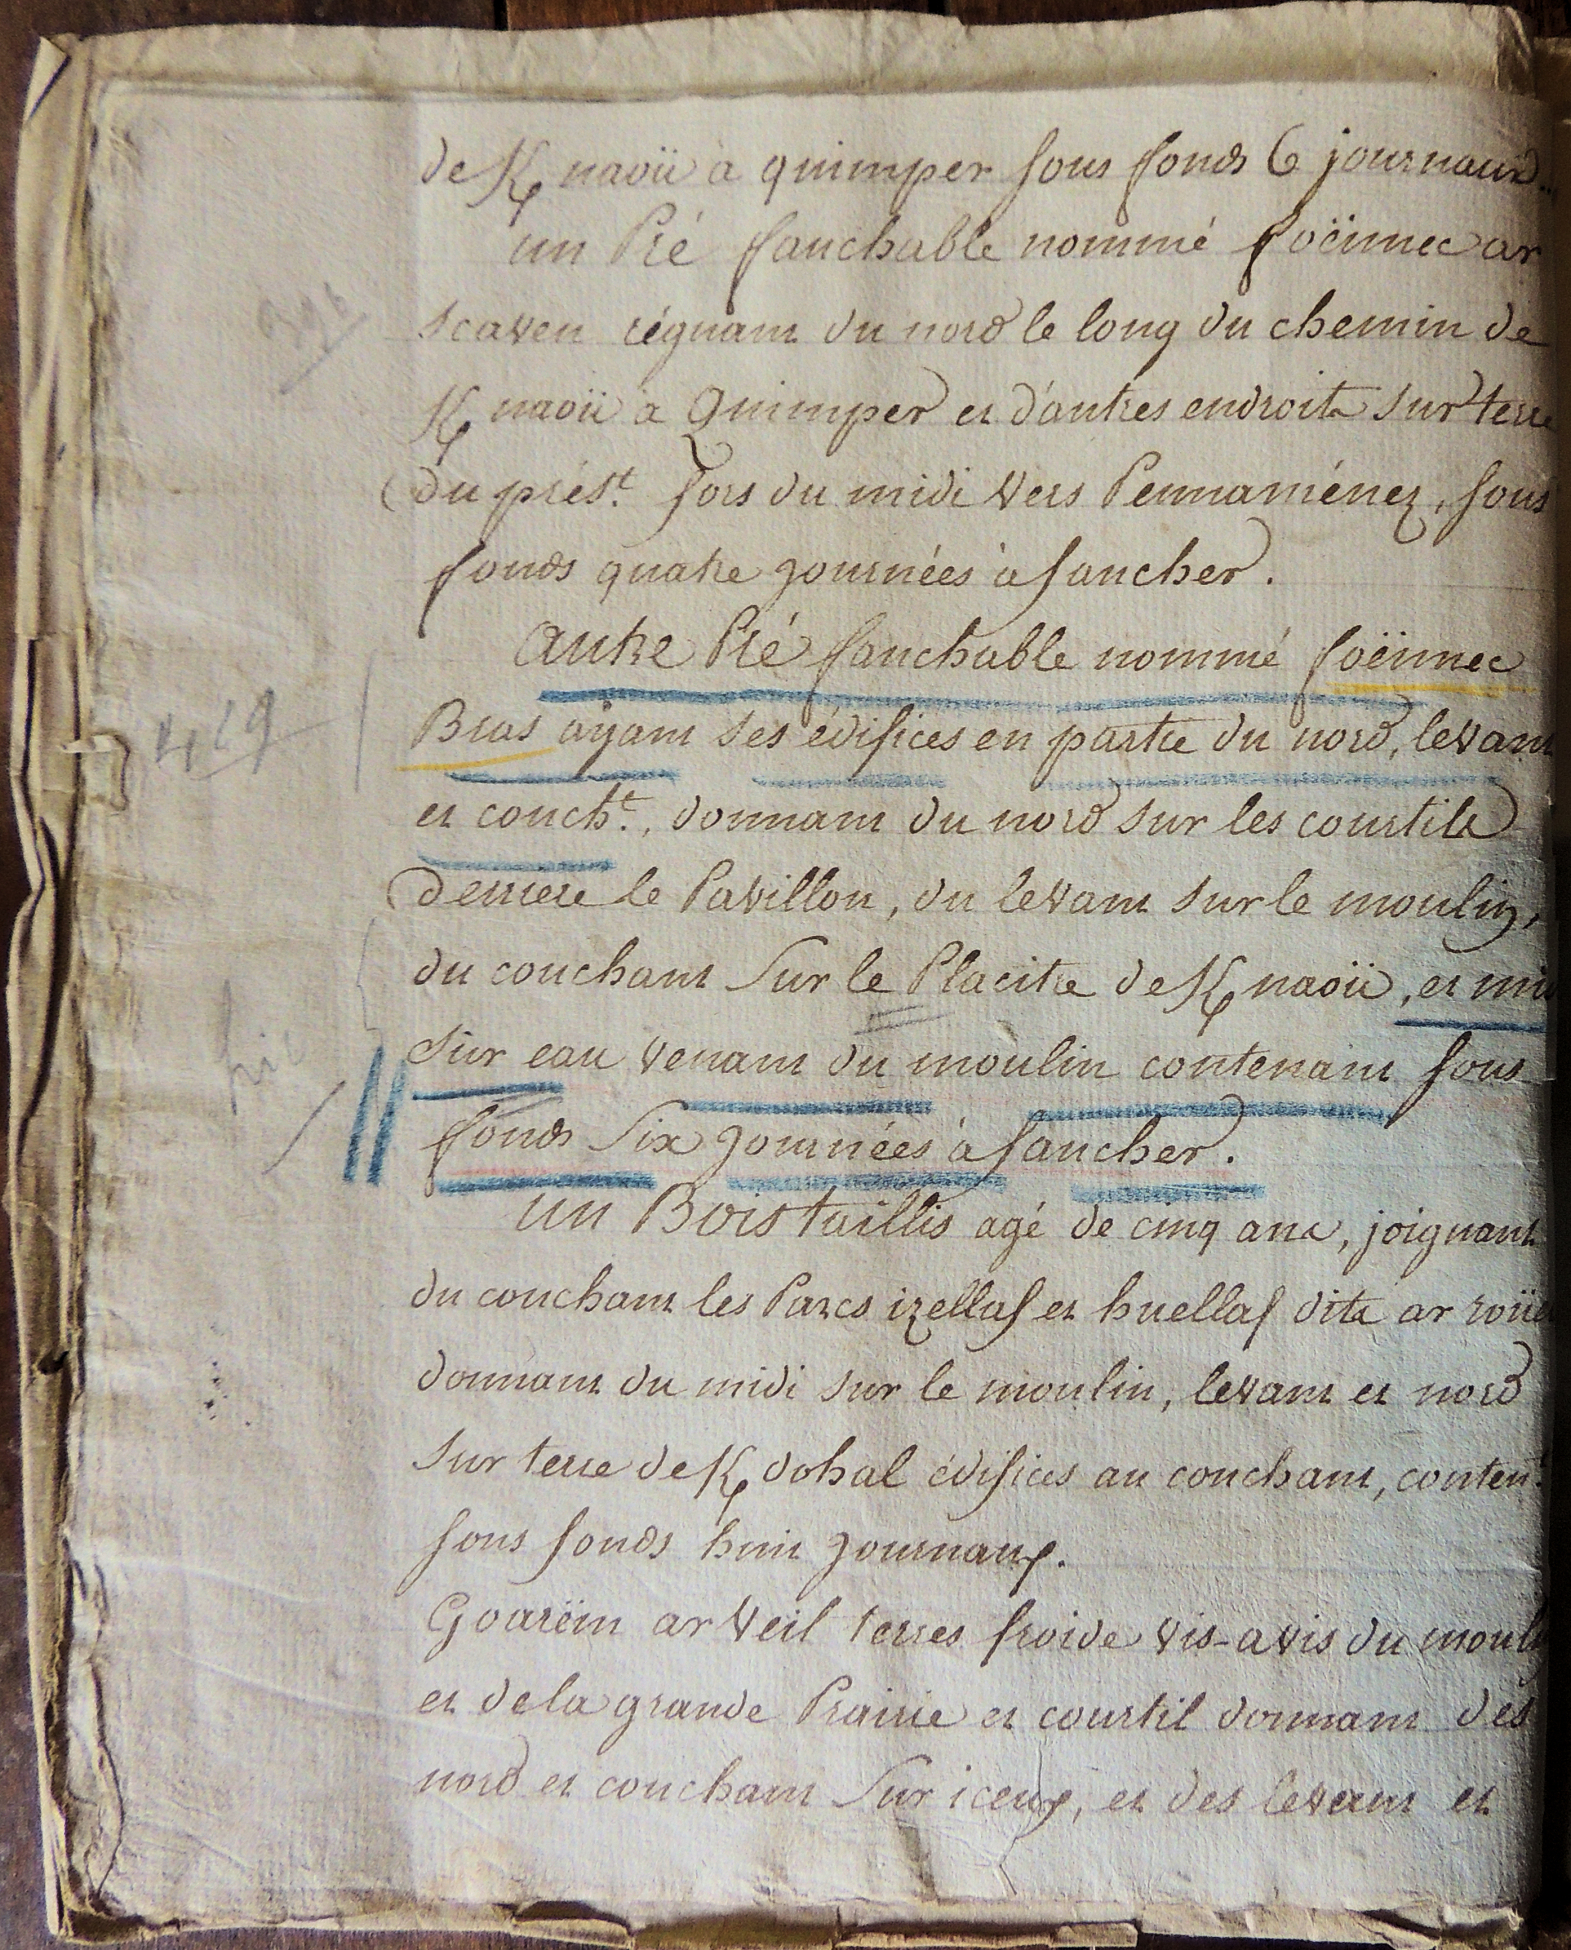 de K naoü à quimper sous fonds 6 journaux
un Pré fauchable nommé foënnec ar
scaven régnant du nord le long du chemin de
K naoü à Quimper et d'autres endroits sur terre
du prést. fors du midi vers Pennaménez, sous
fonds quatre journées à faucher.
autre Pré fauchable nommé foënnec
Bras ayant ses édifices en partie du nord, levant
et coucht., donnant du nord sur les courtils
derriere le Pavillon, du levant sur le moulin,
du couchant sur le Placitre de K naoü, et
sur eau venant du moulin contenant sous
fonds six journées à faucher.
un Bois taillis agé de cinq ans, joignant
du couchant les Parcs izellaf et huellaf dits ar
donnant du midi sur le moulin, levant et nord
sur terre de K dohal édifices au couchant, conten.t
sous fonds huit journaux.
Goarëm ar Veil terres froide vis-a vis du
et de la grande Prairie et courtil donnant des
nord et couchant sur iceux, et des levant et
429
hic